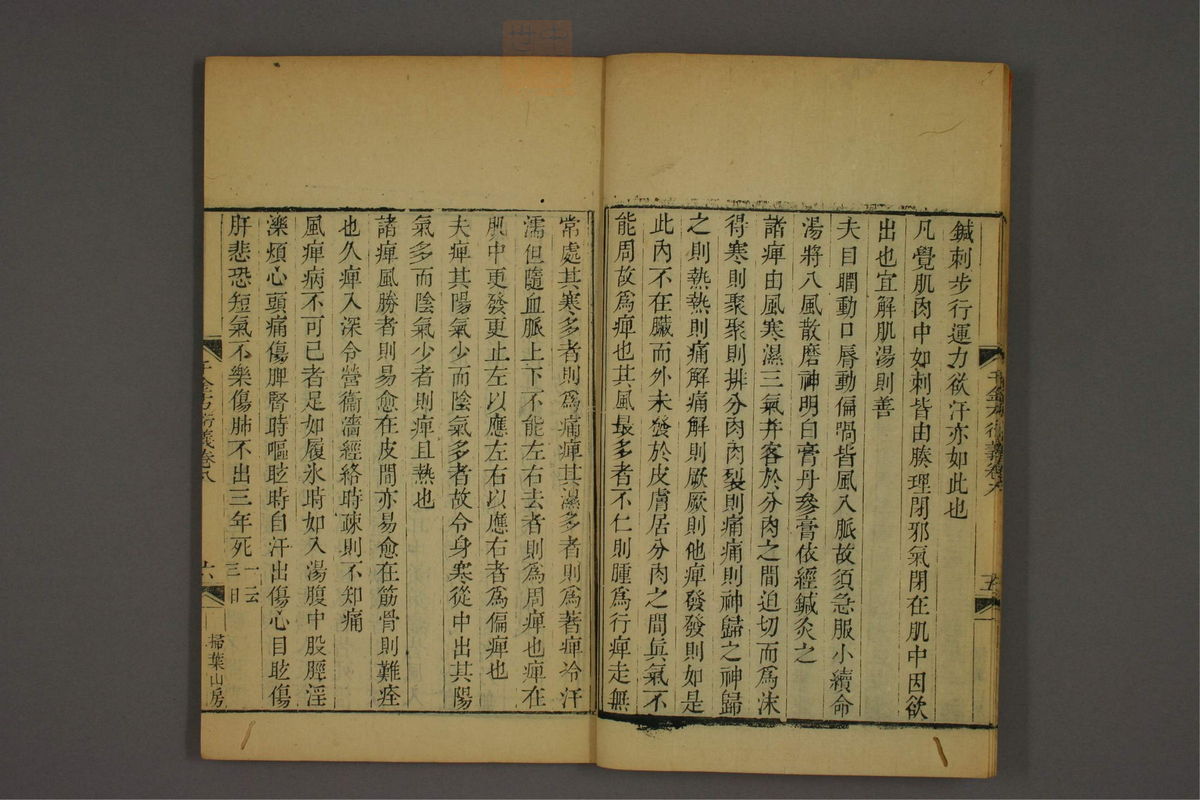 鍼刺步行運力欲汗亦如此也
凡覺肌肉中如刺皆由腠理閉邪氣閉在肌中因欲
出也宜解肌湯則善
夫目瞤動口脣動偏喎皆風入脈故須急服小續命
湯將八風散磨神明白膏丹參膏依經鍼灸之
諸痺由風寒濕三氣并客於分肉之間迫切而爲沫
得寒則聚聚則排分肉肉裂則痛痛則神歸之神歸
之則熱熱則痛解痛解則厥厥則他痺發發則如是
此內不在臟而外未發於皮膚居分肉之間眞氣不
能周故爲痺也其風最多者不仁則腫爲行痺走無
常處其寒多者則爲痛痺其濕多者則爲著痺冷汗
濡但隨血脈上下不能左右去者則爲周痺也痺在
肌中更發更止左以應左右以應右者爲偏痺也
夫痺其陽氣少而陰氣多者故令身寒從中出其陽
氣多而陰氣少者則痺且熱也
諸痺風勝者則易愈在皮間亦易愈在筋骨則難痊
也久痺入深令營衞濇經絡時疎則不知痛
風痺病不可已者足如履氷時如入湯腹中股脛淫
濼煩心頭痛傷脾腎時嘔眩時自汗出傷心目眩傷
肝悲恐短氣不樂傷肺不出三年死一云
三日
千金方衍義卷八
六
掃葉山房